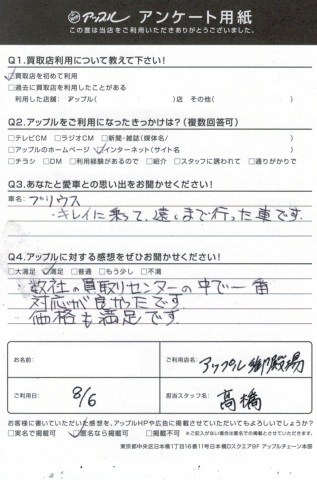 アップル アンケート用紙
この度は当店をご利用いただきありがとうございました。
Q1.買取店利用について教えて下さい!
☑買取店を初めて利用
□過去に買取店を利用したことがある
利用した店舗: アップル( )店 その他( )
Q2.アップルをご利用になったきっかけは?(複数回答可)
□テレビCM □ラジオCM □新聞・雑誌(媒体名/ )
□アップルのホームページ ☑インターネット(サイト名 )
□チラシ □DM □利用経験があるので □紹介 □スタッフに誘われて □通りがかりで
Q3.あなたと愛車との思い出をお聞かせください!
車名: プリウス
・キレイに乗って、遠くまで行った車です。
Q4.アップルに対する感想をぜひお聞かせください!
□大満足 ☑満足 □普通 □もう少し □不満
・数社の買取りセンターの中で一番
対応が良かったです。
・価格も満足です。
お名前:
ご利用店名: アップル御殿場
ご利用日: 8/6
担当スタッフ名: 高橋
お客様に書いていただいた感想を、アップルHPや広告に掲載させていただいてもよろしいでしょうか?
□実名で掲載可 ☑匿名なら掲載可 □掲載不可 ※ご記入がない場合は匿名での掲載とさせていただきます。
東京都中央区日本橋1丁目16番11号日本橋Dスクエア9F アップルチェーン本部